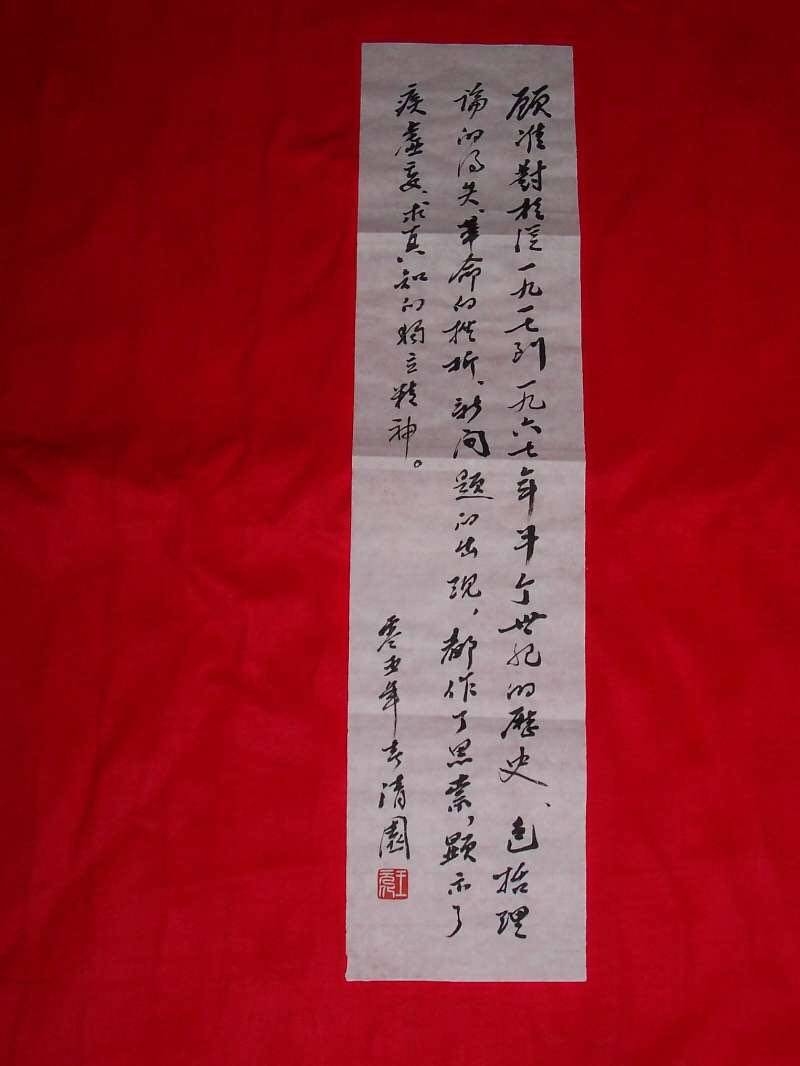 顧准對於從一九一七到一九六七年半个世紀的歷史、包括理
論的得失、革命的挫折、新問題的出現，都作了思索，顯示了
疾虛妄、求真知的獨立精神。
零五年清園